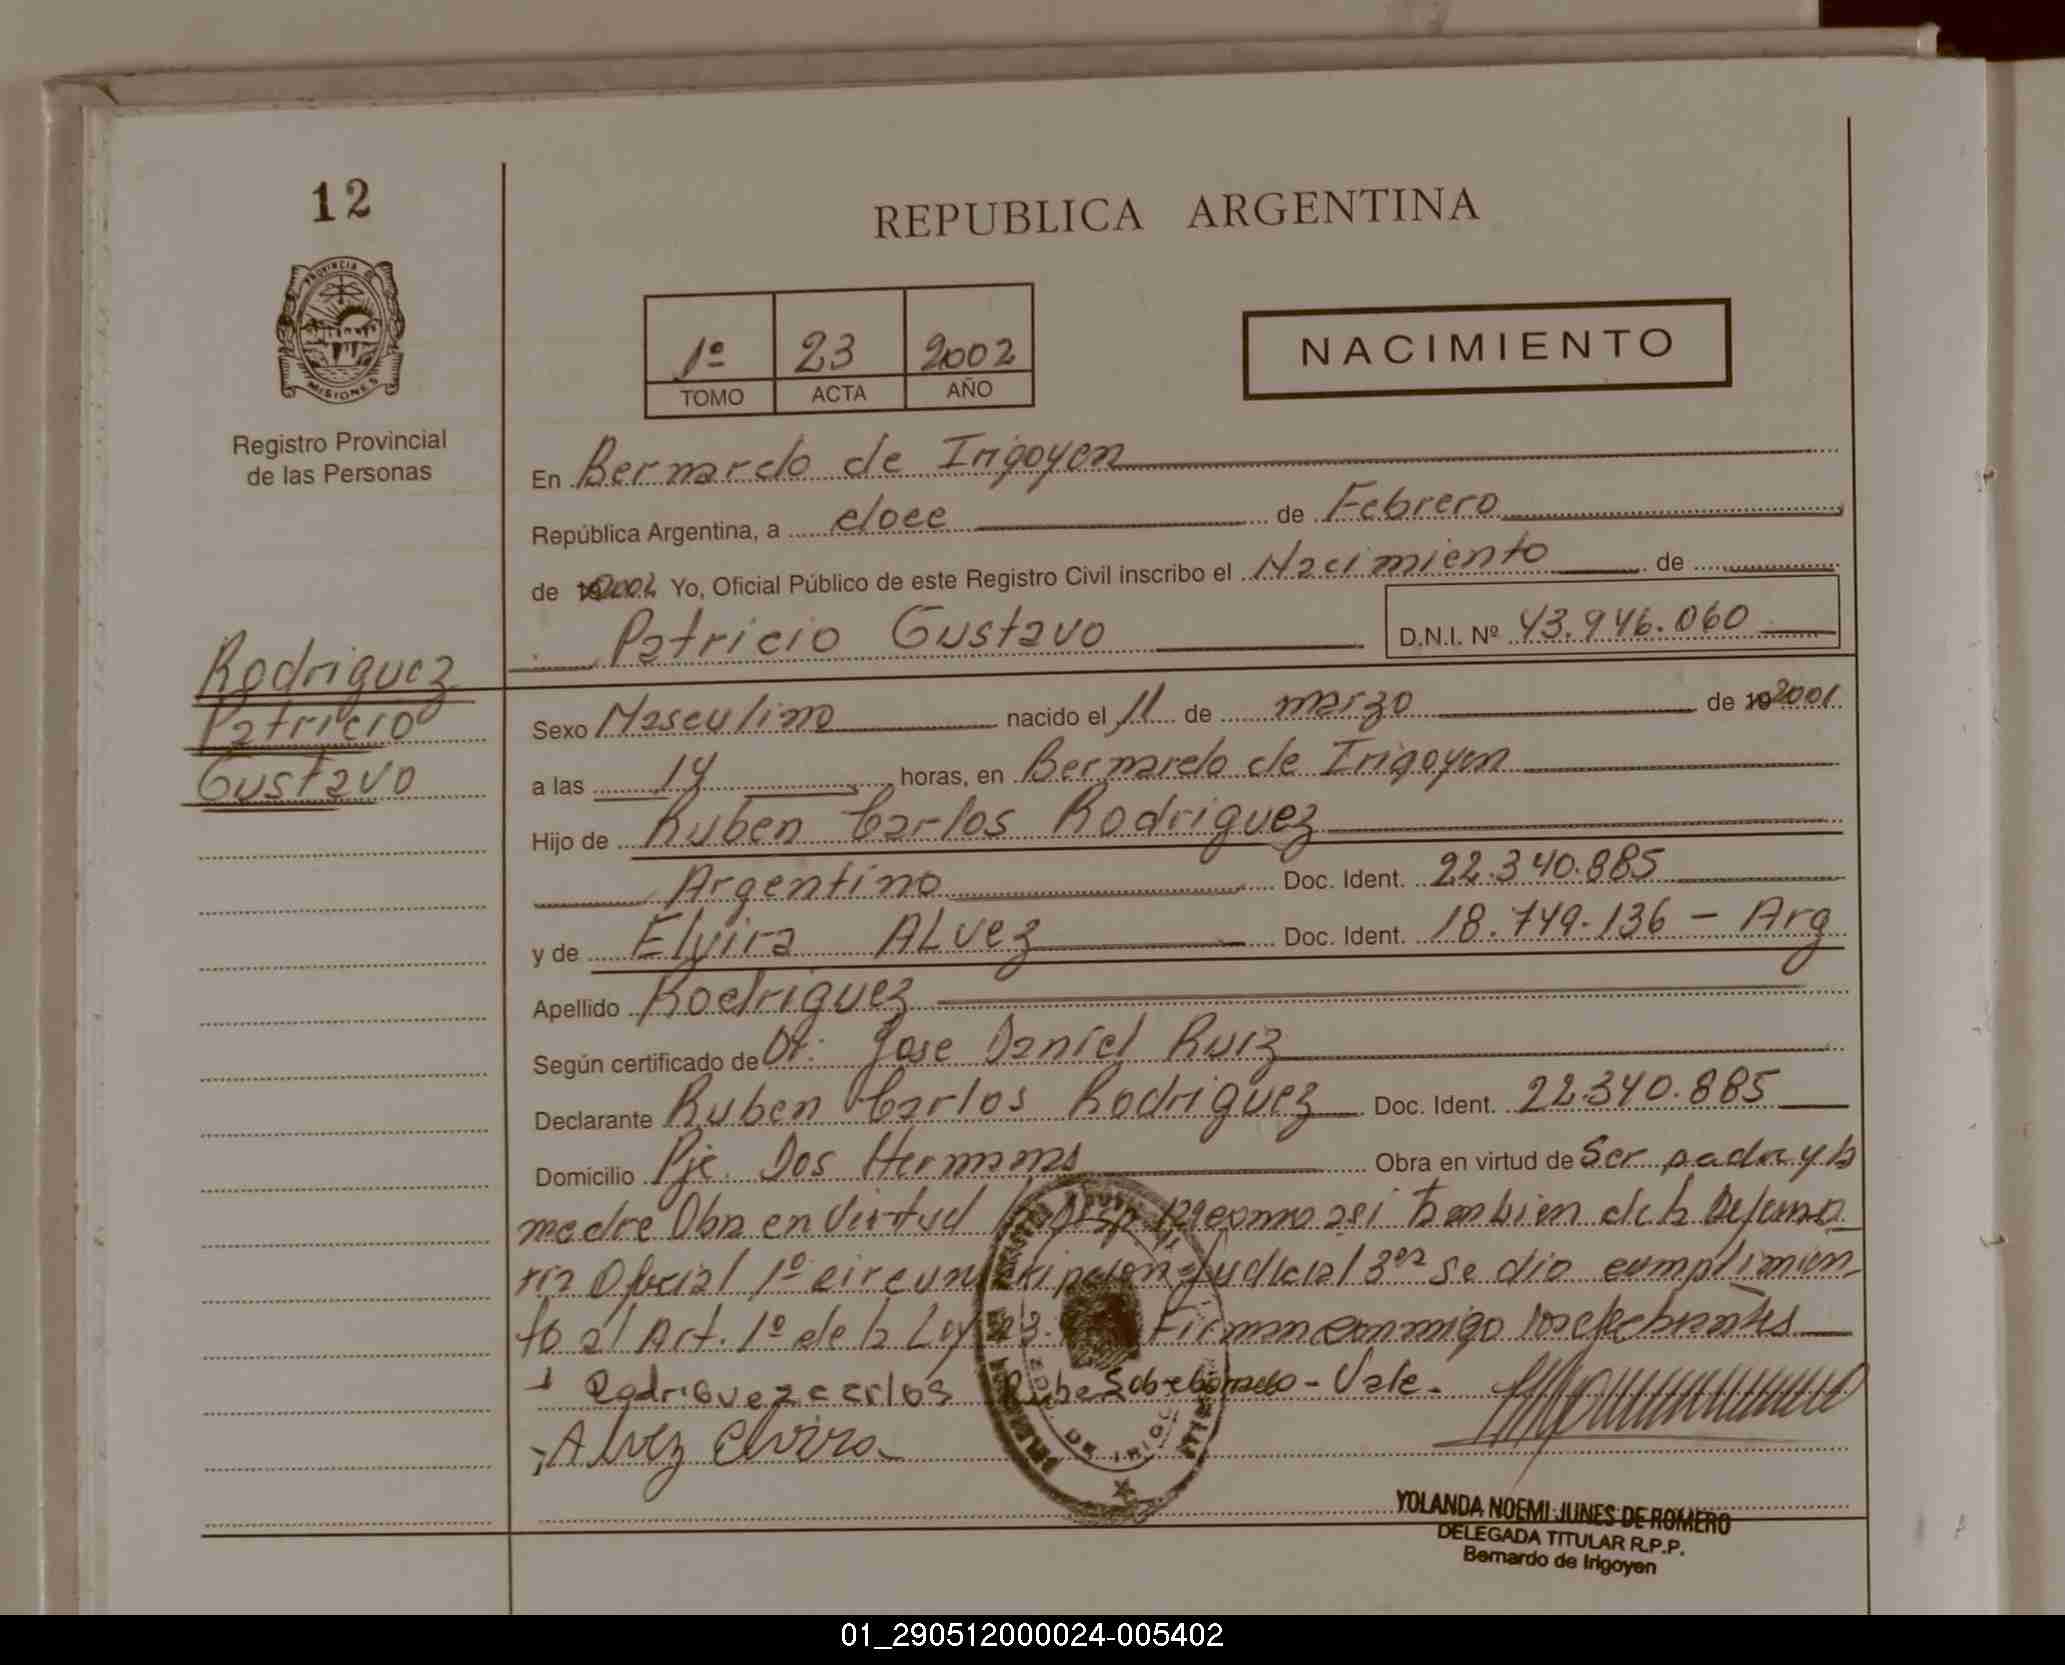 12
REPUBLICA ARGENTINA
PROVINCIA DE
MISIONES
Registro Provincial
de las Personas
1º 23 2002
TOMO ACTA AÑO
NACIMIENTO
En Bernardo de Irigoyen
República Argentina, a doce de Febrero
de 2002 Yo, Oficial Público de este Registro Civil inscribo el Nacimiento de
Patricio Gustavo D.N.I. Nº 43.946.060
Rodriguez
Patricio
Gustavo
Sexo Masculino nacido el 11 de marzo de 2001
a las 14 horas, en Bernardo de Irigoyen
Hijo de Ruben Carlos Rodriguez
Argentino Doc. Ident. 22.340.885
y de Elvira ALvez Doc. Ident. 18.749.136 - Arg
Apellido Rodriguez
Según certificado de Dr. Jose Daniel Ruiz
Declarante Ruben Carlos Rodriguez Doc. Ident. 22.340.885
Domicilio Pje. Dos Hermanas Obra en virtud de Ser padre y la
madre Obra en virtud como asi tambien de la Defenso
ria Oficial 1º circunscripcion Judicial 3era se dio cumplimien
to al Art. 1º de la Ley Firman conmigo los declarantes
Rodriguez carlos Ruben Sobreborrado - Vale.
Alvez Elvira
DE IRIGO
YOLANDA NOEMI JUNES DE ROMERO
DELEGADA TITULAR R.P.P.
Bernardo de Irigoyen
01_290512000024-005402